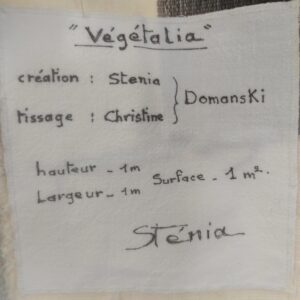 "Végétalia"
création : Stenia
tissage : Christine } Domanski
hauteur - 1m
Largeur - 1m
Surface - 1 m².
Sténia